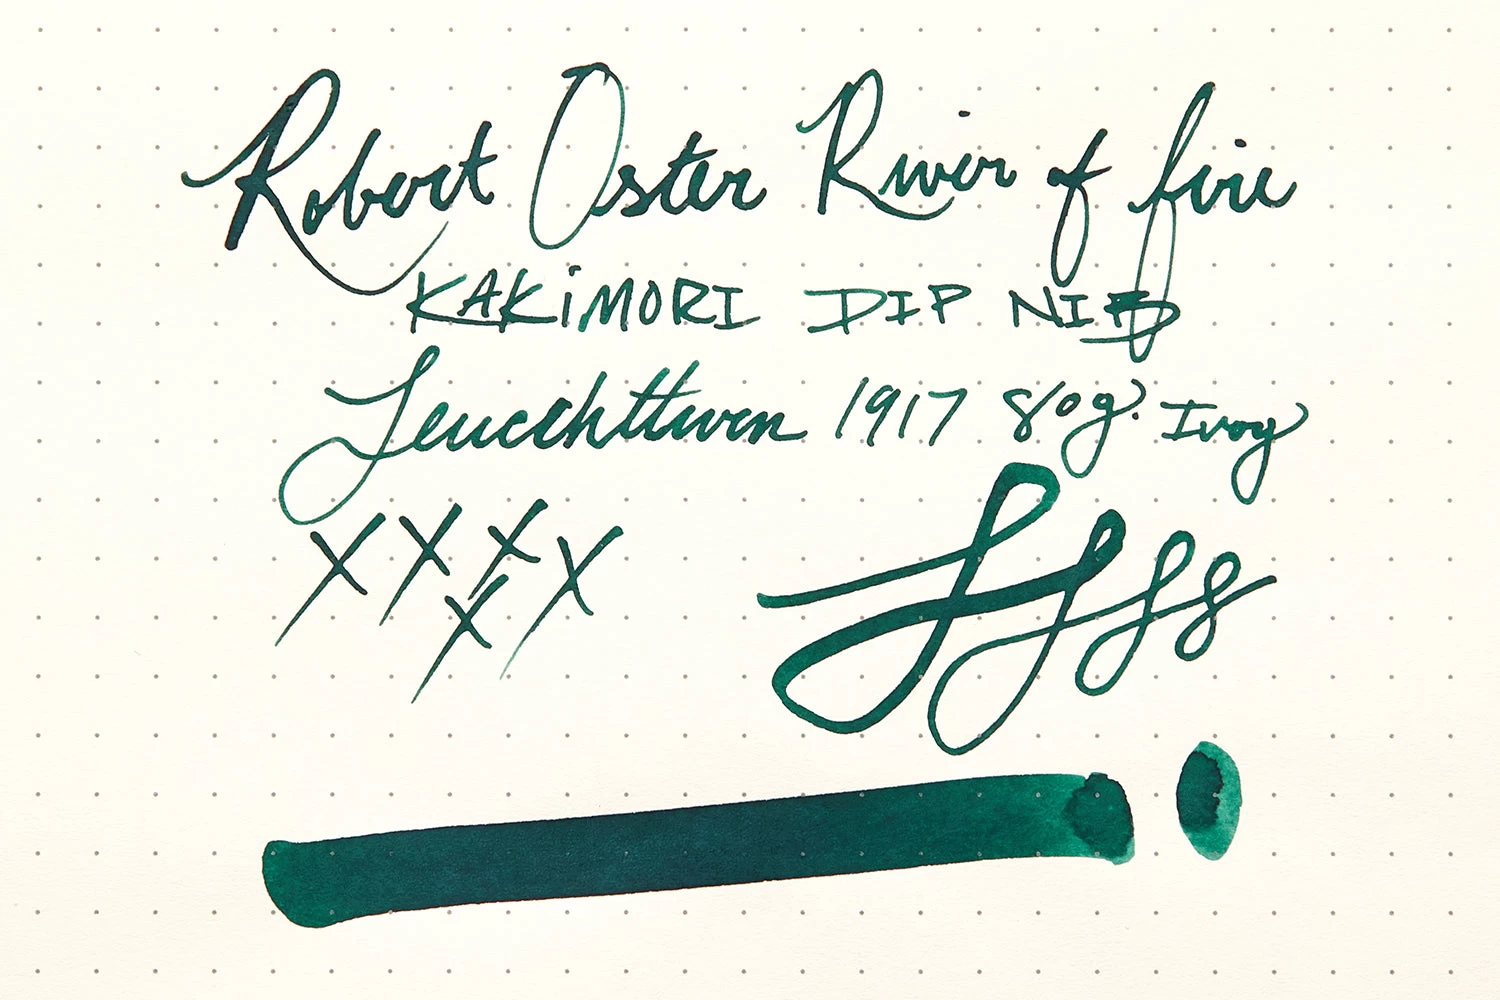 Robert Oster River of fire
KAKiMORI DIP NIB
Leuchtturm 1917 80g. Ivory
XXXXX